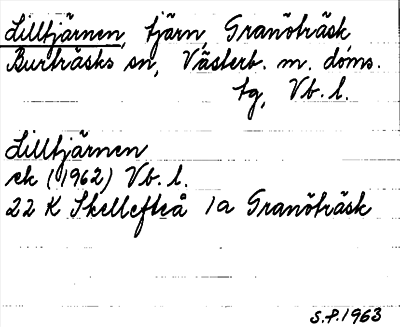 Lilltjärnen, tjärn, Granöträsk
Burträsks sn, Västerb. m. doms.
tg, Vb. l.
Lilltjärnen
ek (1962) Vb. l.
22 K Skellefteå 1a Granöträsk
S.P. 1963